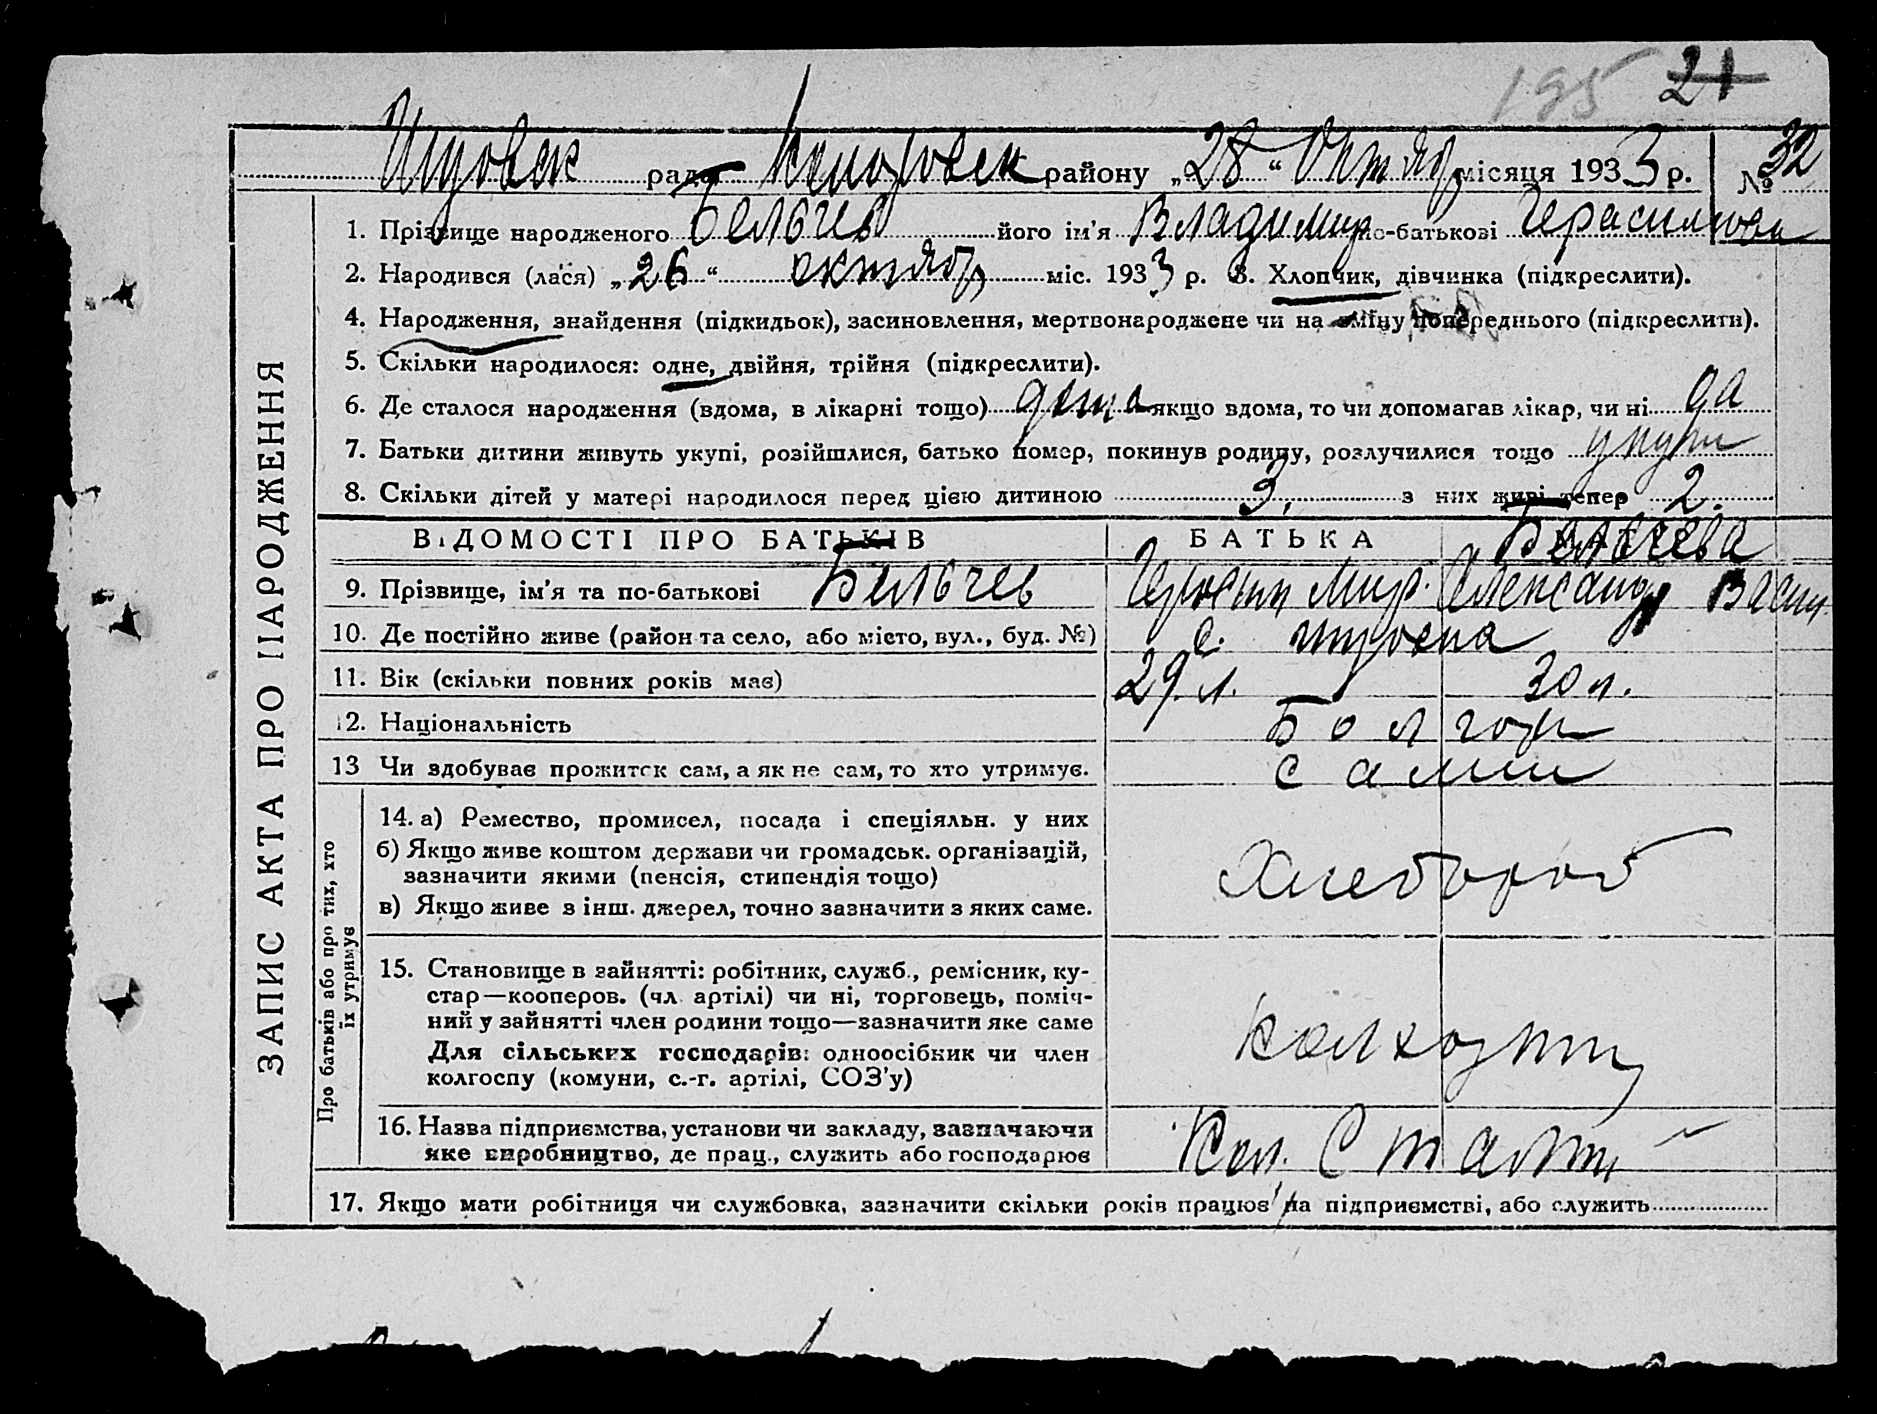 195 21
рада района району „28“ Октябр місяця 1933 р. № 32
1. Прізвище народженого Бельчев його ім'я Владимир по-батькові Герасимов
2. Народився (лася) „26“ октябр міс. 1933 р. 3. Хлопчик, дівчинка (підкреслити).
4. Народження, знайдення (підкидьок), засиновлення, мертвонароджене чи на зміну попереднього (підкреслити).
5. Скільки народилося: одне, двійня, трійня (підкреслити).
6. Де сталося народження (вдома, в лікарні тощо) дома якщо вдома, то чи допомагав лікар, чи ні да
7. Батьки дитини живуть укупі, розійшлися, батько помер, покинув родину, розлучилися тощо укупи
8. Скільки дітей у матері народилося перед цією дитиною 3, з них живі тепер 2.
ВІДОМОСТІ ПРО БАТЬКІВ БАТЬКА Бельчева
9. Прізвище, ім'я та по-батькові Бельчев Герасим Мир. Александр Васил.
10. Де постійно живе (район та село, або місто, вул., буд. №) с.
11. Вік (скільки повних років має) 29 л. 30 л.
12. Національність Болгары
13 Чи здобуває прожиток сам, а як не сам, то хто утримує. сами
14. а) Ремество, промисел, посада і спеціяльн. у них
б) Якщо живе коштом держави чи громадськ. організацій,
зазначити якими (пенсія, стипендія тощо)
в) Якщо живе з інш. джерел, точно зазначити з яких саме.
Хлебороб
15. Становище в зайнятті: робітник, служб., ремісник, ку-
стар—кооперов. (чл. артілі) чи ні, торговець, поміч-
ний у зайнятті член родини тощо—зазначити яке саме
Для сільських господарів: одноосібник чи член
колгоспу (комуни, с.-г. артілі, СОЗ'у)
16. Назва підприємства, установи чи закладу, зазначаючи
яке виробництво, де прац., служить або господарює
Кол. Сталин
17. Якщо мати робітниця чи службовка, зазначити скільки років працює на підприємстві, або служить
ЗАПИС АКТА ПРО НАРОДЖЕННЯ
Про батьків або про тих, хто
їх утримує